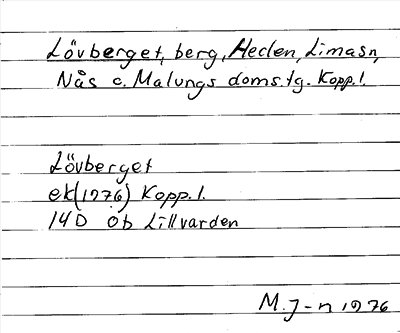 Lövberget, berg, Heden, Limasn,
Nås o. Malungs doms.tg. Kopp.l.
Lövberget
ek(1976) Kopp.l.
14D Öb Lillvarden
M.J-n 1976